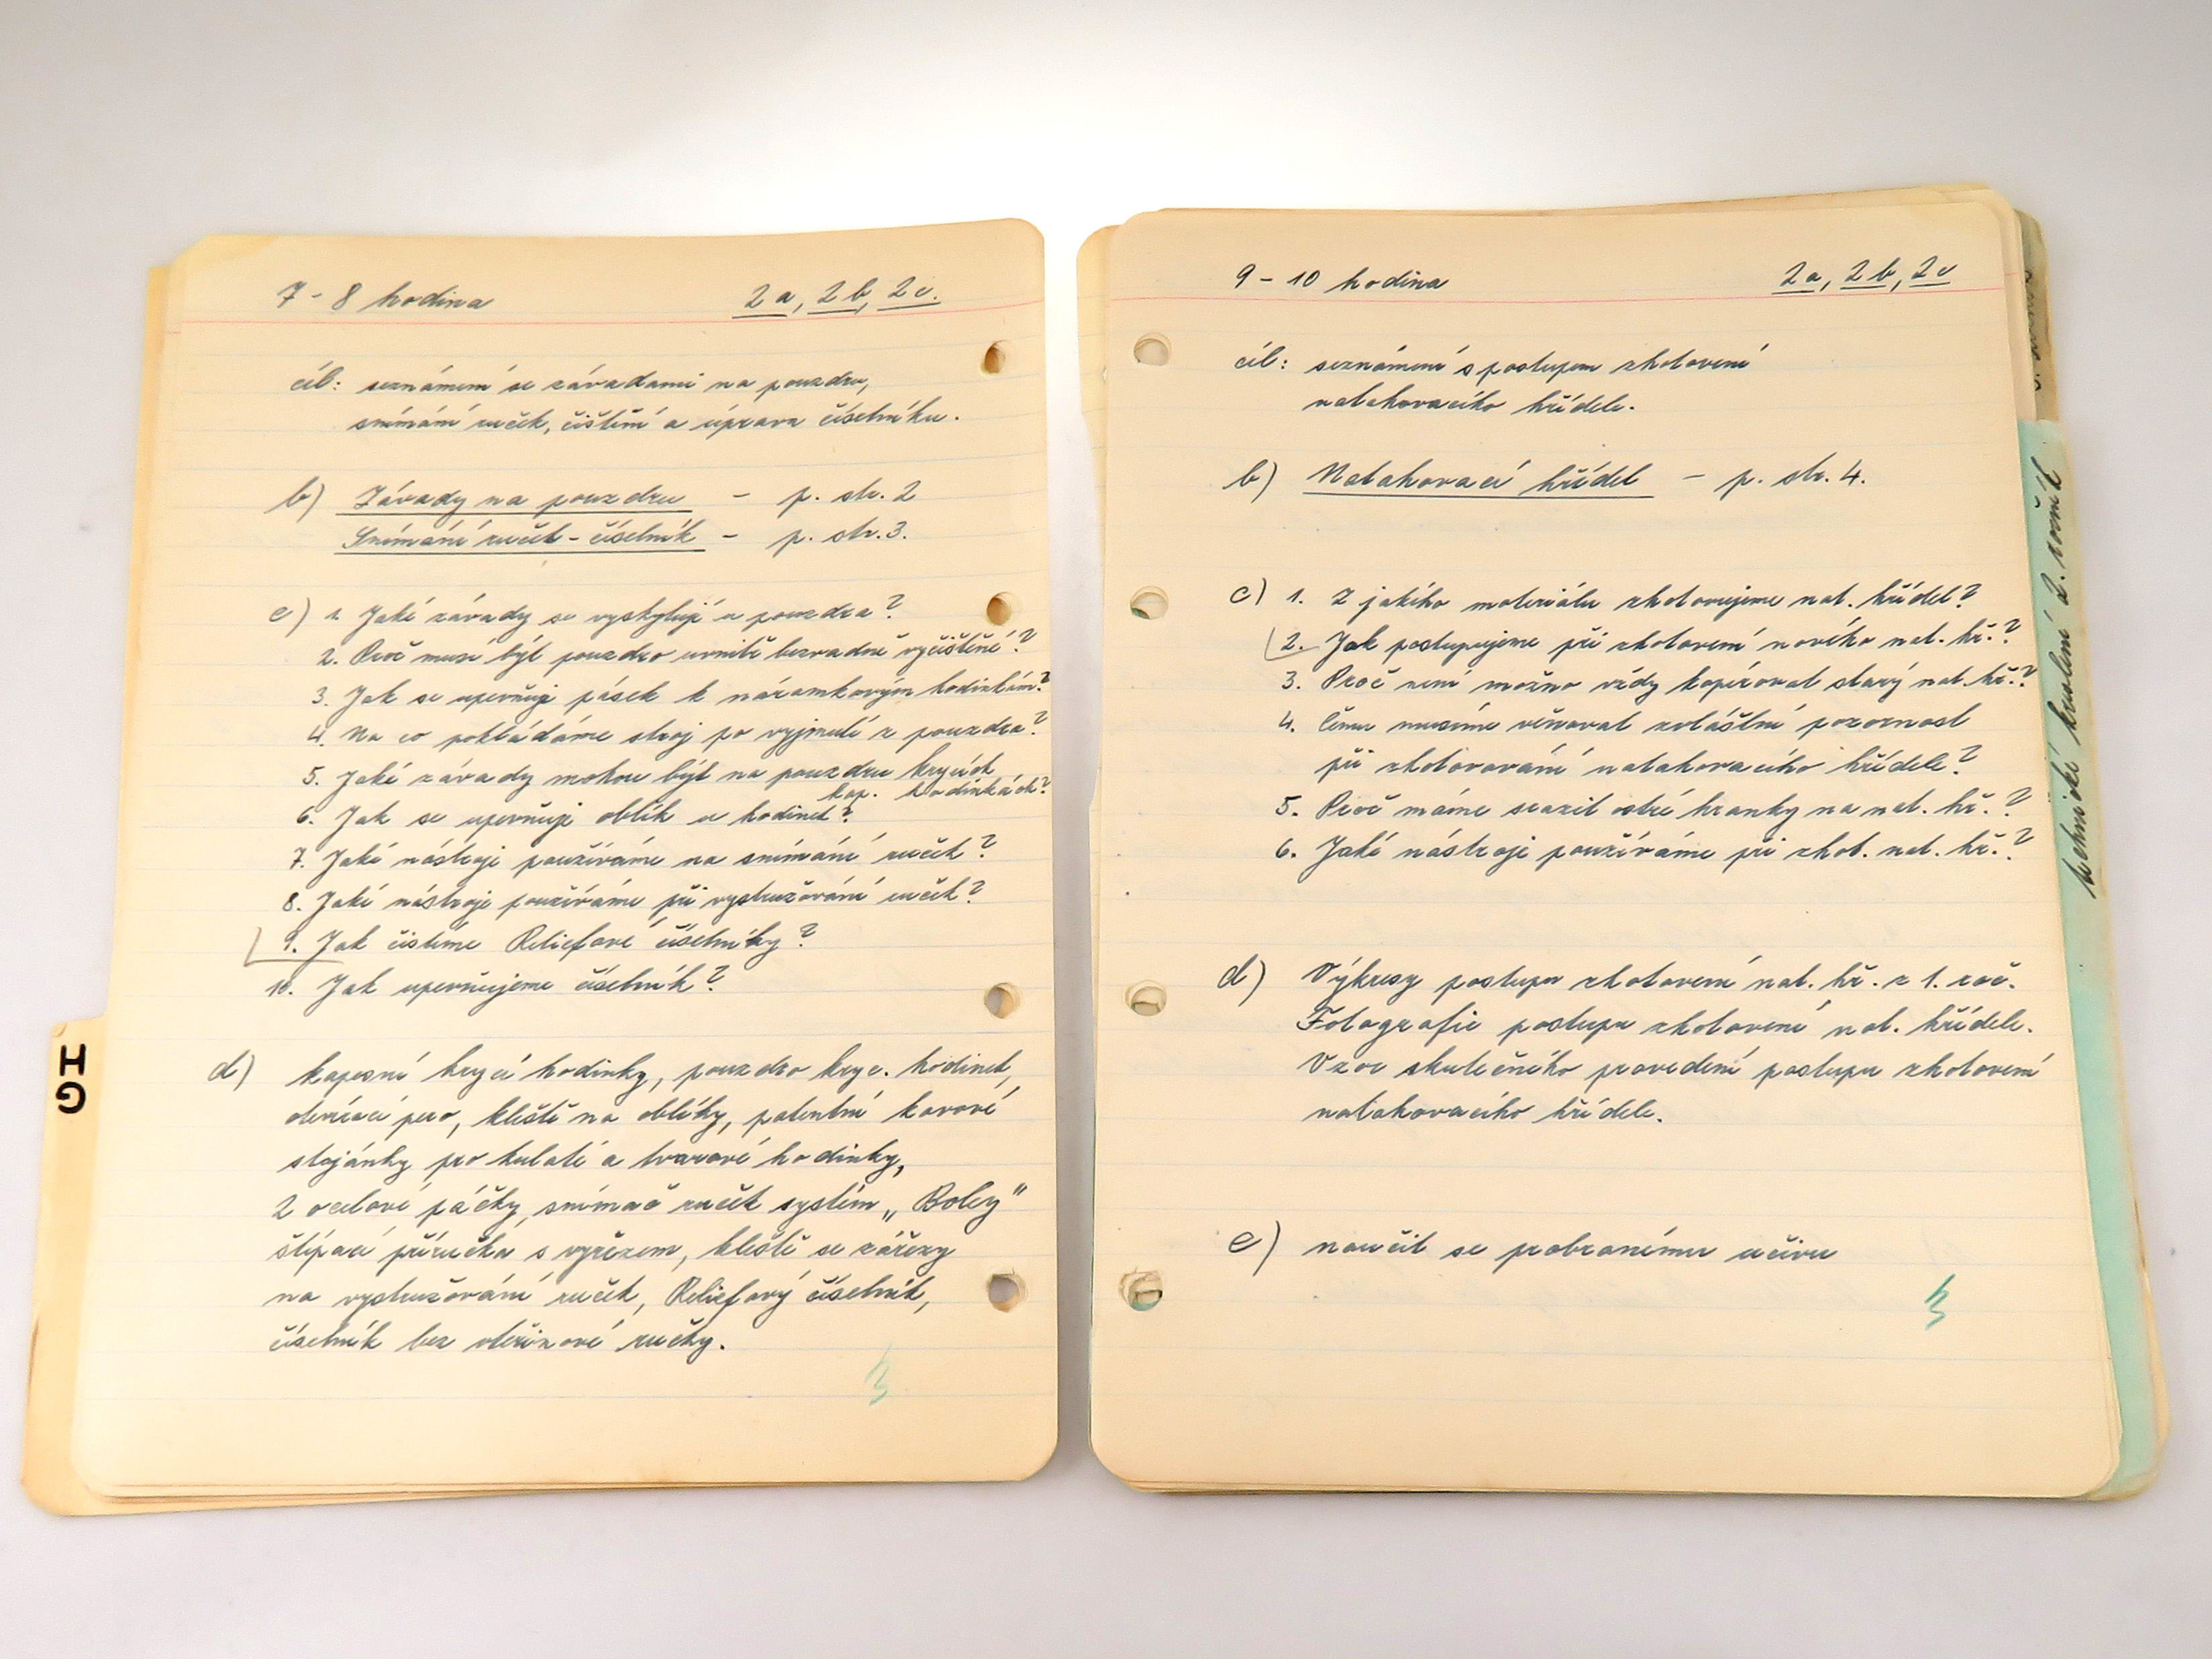 7 - 8 hodina 2a, 2b, 2c.
cíl: seznámení se závadami na pouzdru,
snímání ruček, čištění a úprava číselníku.
b) Závady na pouzdru - p. str. 2
Snímání ruček - číselník - p. str. 3.
c) 1. Jaké závady se vyskytují u pouzdra?
2. Proč musí být pouzdro uvnitř bezvadně vyčištěné?
3. Jak se upevňuje pásek k náramkovým hodinkám?
4. Na co pokládáme stroj po vyjmutí z pouzdra?
5. Jaké závady mohou být na pouzdru krycích
kap. hodinkách?
6. Jak se upevňuje oblík u hodinek?
7. Jaké nástroje používáme na snímání ruček?
8. Jaké nástroje používáme při vystružování ruček?
9. Jak čistíme Reliefové číselníky?
10. Jak upevňujeme číselník?
d) kapesní krycí hodinky, pouzdro kryc. hodinek,
otevírací pero, kleště na oblíky, patentní kovové
stojánky pro kulaté a tvarové hodinky,
2 ocelové páčky, snímač ruček systém „Boley"
štípací příručka s výřezem, kleště se zářezy
na vystružování ruček, Reliefový číselník,
číselník bez vteřinové ručky.
HG
9 - 10 hodina 2a, 2b, 2c
cíl: seznámení s postupem zhotovení
natahovacího hřídele.
b) Natahovací hřídel - p. str. 4.
c) 1. Z jakého materiálu zhotovujeme nat. hřídel?
2. Jak postupujeme při zhotovení nového nat. hř.?
3. Proč není možno vždy kopírovat starý nat. hř.?
4. Čemu musíme věnovat zvláštní pozornost
při zhotovování natahovacího hřídele?
5. Proč máme srazit ostré hranky na nat. hř.?
6. Jaké nástroje používáme při zhot. nat. hř.?
d) Výkresy postupu zhotovení nat. hř. z 1. roč.
Fotografie postupu zhotovení nat. hřídele.
Vzor skutečného provedení postupu zhotovení
natahovacího hřídele.
e) naučit se probranému učivu
technické kreslení 2. ročník